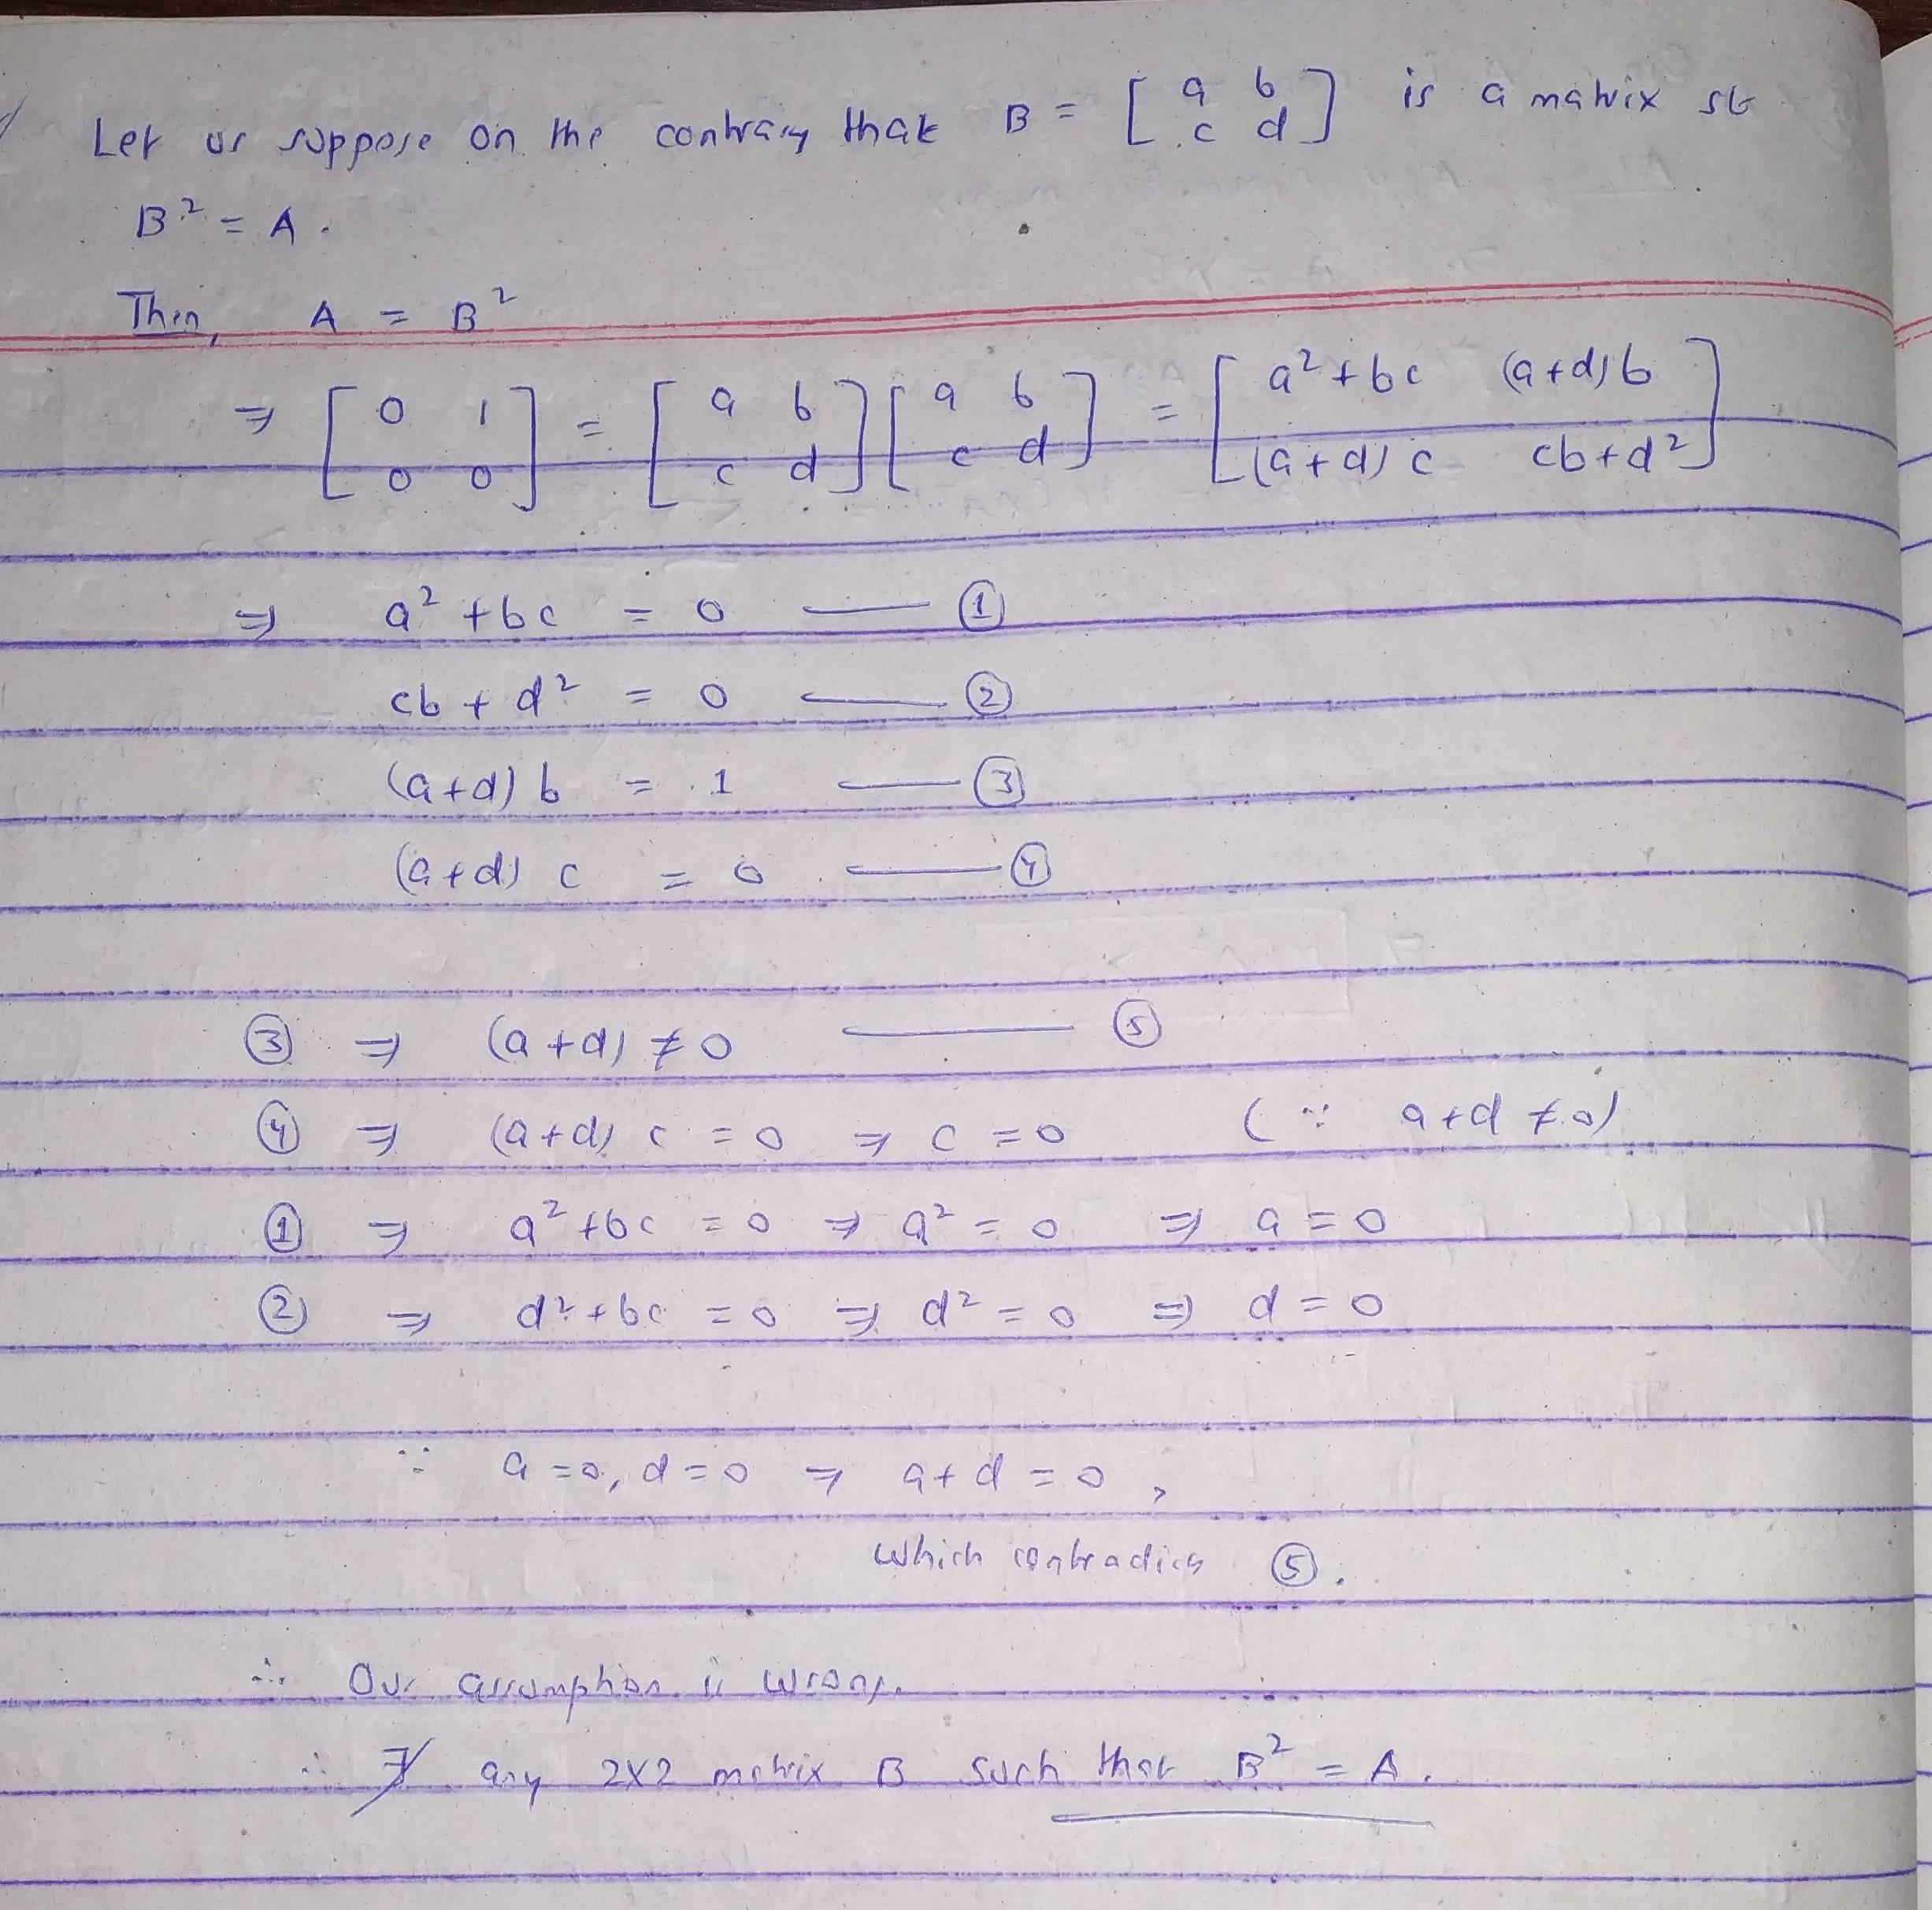 Let us suppose on the contrary that B = [ a b ; c d ] is a matrix st
B² = A.
Then, A = B²
⇒ [ 0 1 ; 0 0 ] = [ a b ; c d ] [ a b ; c d ] = [ a²+bc (a+d)b ; (a+d)c cb+d² ]
⇒ a² + bc = 0 — ①
cb + d² = 0 — ②
(a+d) b = 1 — ③
(a+d) c = 0 — ④
③ ⇒ (a+d) ≠ 0 — ⑤
④ ⇒ (a+d) c = 0 ⇒ c = 0 (∵ a+d ≠ 0)
① ⇒ a² + bc = 0 ⇒ a² = 0 ⇒ a = 0
② ⇒ d² + bc = 0 ⇒ d² = 0 ⇒ d = 0
∵ a = 0, d = 0 ⇒ a + d = 0,
which contradicts ⑤.
∴ Our assumption is wrong.
∴ ∄ any 2×2 matrix B such that B² = A.